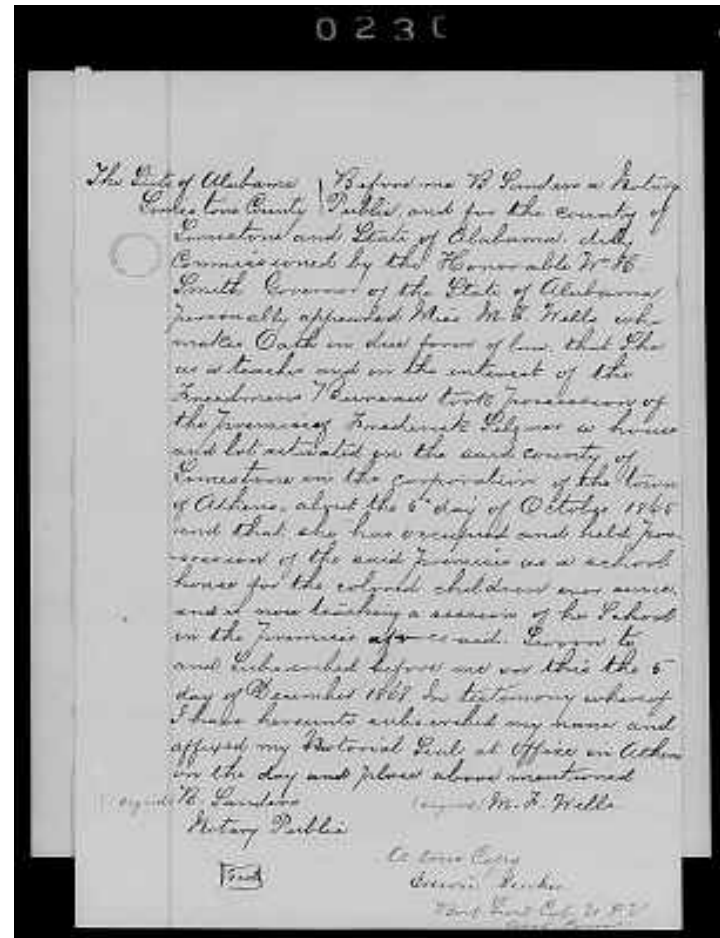 023
The State of Alabama } Before me B Sanders a Notary
Limestone County } Public, and for the county of
Limestone and State of Alabama, duly
Commissioned by the Honorable Wm H
Smith Governor of the State of Alabama
personally appeared Miss M. F. Wells who
makes Oath in due form of law, that She
as a teacher and in the interest of the
Freedmens Bureau took possession of
the premises Frederick a house
and lot situated in the said county of
Limestone in the corporation of the town
of Athens, about the 5 day of October 1865
and that she has occupied and held pos-
-session of the said premises as a school
house for the colored children ever since,
and is now teaching a session of he School
in the premises aforesaid. Sworn to
and Subscribed before me on this the 5
day of December 1868 In testimony whereof
I have hereunto subscribed my name and
affixed my Notorial Seal at office in Athens
on the day and place above mentioned
signed B. Sanders (signed M. F. Wells
Notary Public
A true Copy
Seal